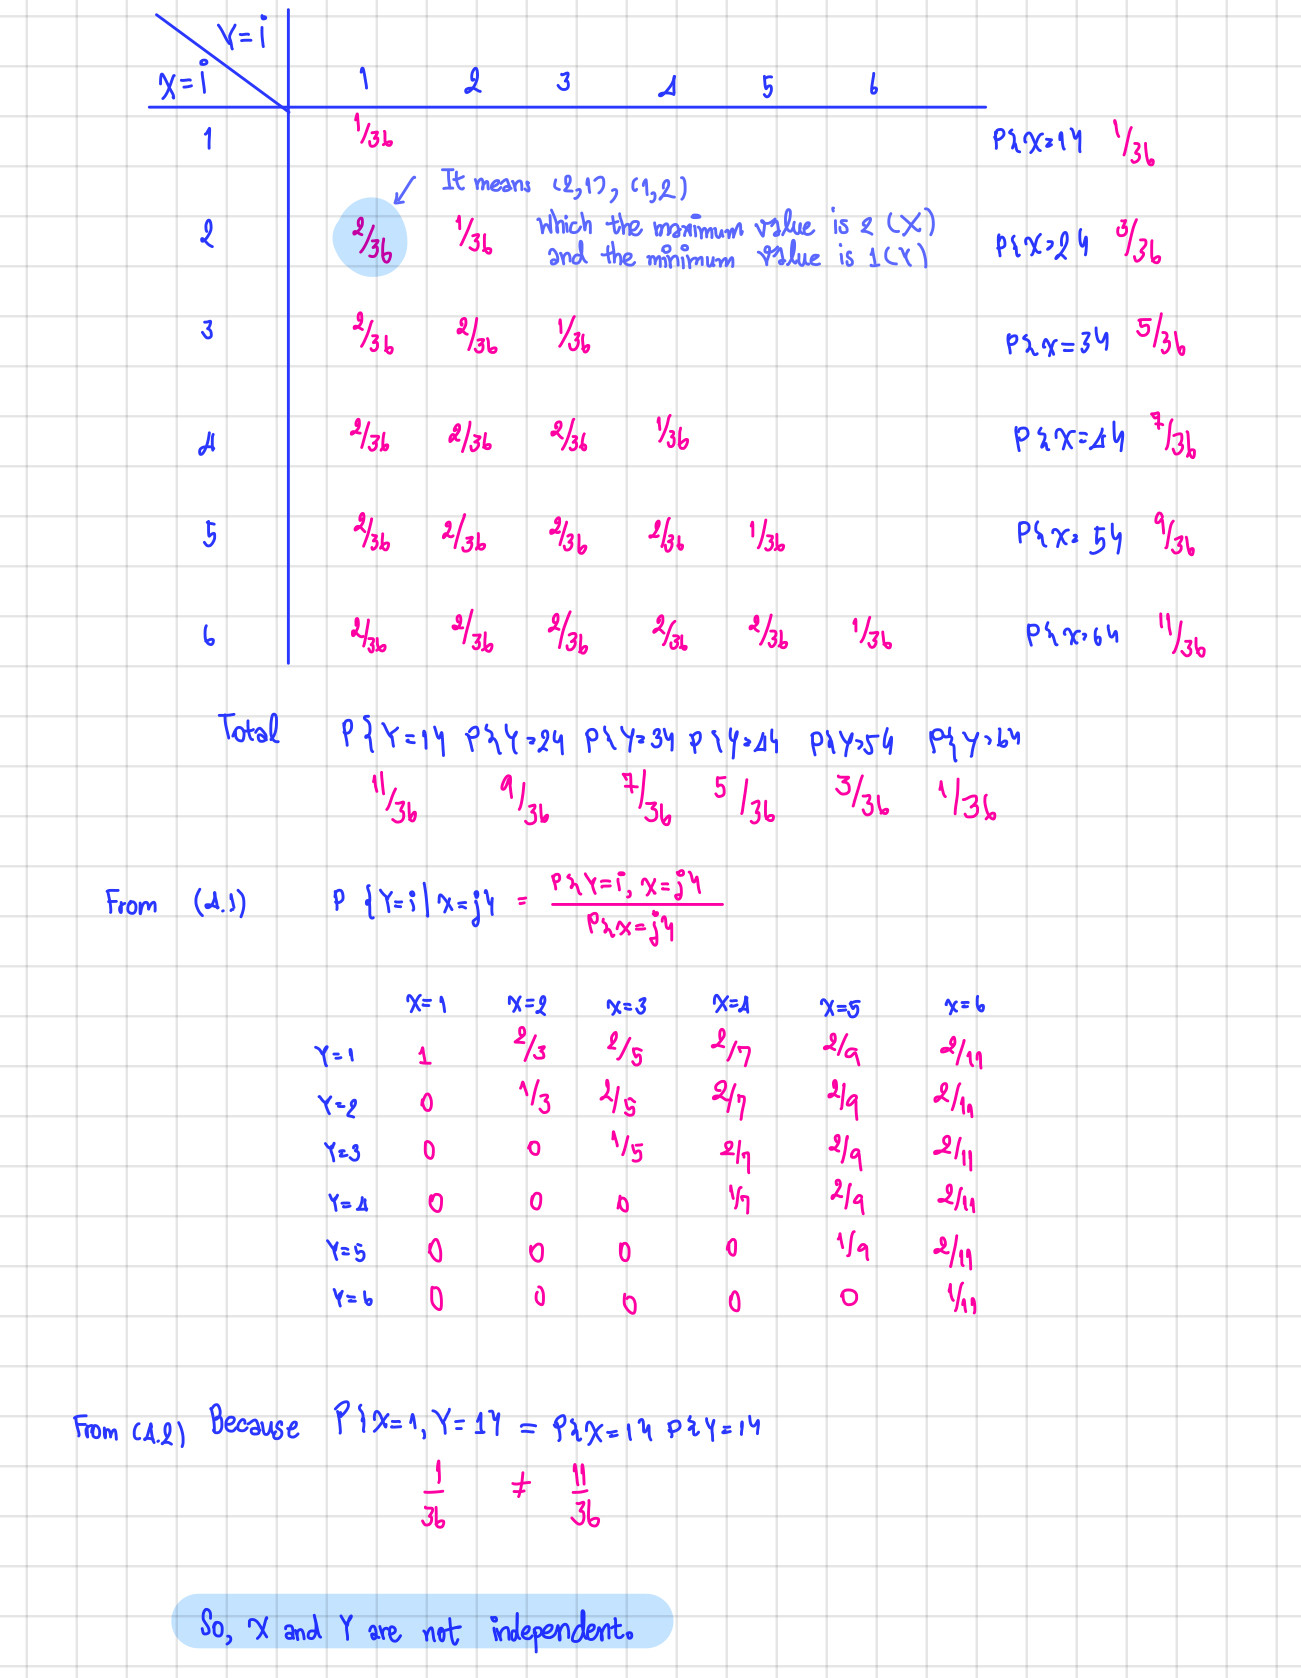 Y=i
X=i 1 2 3 4 5 6
1 1/36 P{X=1} 1/36
It means (2,1), (1,2)
2 2/36 1/36 which the maximum value is 2 (X) P{X=2} 3/36
and the minimum value is 1(Y)
3 2/36 2/36 1/36 P{X=3} 5/36
4 2/36 2/36 2/36 1/36 P{X=4} 7/36
5 2/36 2/36 2/36 2/36 1/36 P{X=5} 9/36
6 2/36 2/36 2/36 2/36 2/36 1/36 P{X=6} 11/36
Total P{Y=1} P{Y=2} P{Y=3} P{Y=4} P{Y=5} P{Y=6}
11/36 9/36 7/36 5/36 3/36 1/36
From (4.1) P{Y=i|X=j} = P{Y=i, X=j} / P{X=j}
X=1 X=2 X=3 X=4 X=5 X=6
Y=1 1 2/3 2/5 2/7 2/9 2/11
Y=2 0 1/3 2/5 2/7 2/9 2/11
Y=3 0 0 1/5 2/7 2/9 2/11
Y=4 0 0 0 1/7 2/9 2/11
Y=5 0 0 0 0 1/9 2/11
Y=6 0 0 0 0 0 1/11
From (4.2) Because P{X=1, Y=1} = P{X=1} P{Y=1}
1/36 ≠ 11/36
So, X and Y are not independent.